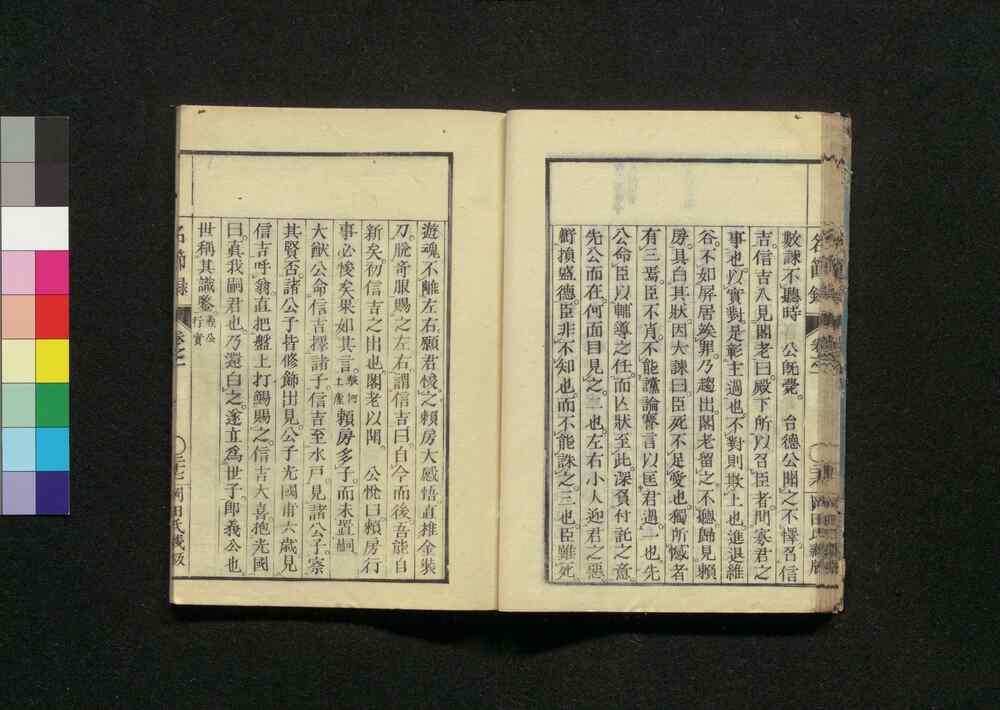 數諫不聽時 公既薨 台德公聞之不懌召信
吉信吉入見閣老曰殿下所以召臣者問寡君之
事也以實對是彰主過也不對則欺上也進退維
谷不如屏居竢罪乃趨出閣老留之不聽歸見賴
房具白其狀因大諫曰臣死不足愛也獨所憾者
有三焉臣不肖不能讜論謇言以匡君過一也先
公命臣以輔導之任而亡狀至此深負付託之意
先公而在何面目見之二也左右小人迎君之惡
虧損盛德臣非不知也而不能誅之三也臣雖死
遊魂不離左右願君悛之賴房大感悟直推金裝
刀脫奇服賜之左右謂信吉曰自今而後吾能自
新矣初信吉之出也閣老以聞 公悅曰賴房行
事必悛矣果如其言 賴房多子而未置嗣
大猷公命信吉擇諸子信吉至水戶見諸公子察
其賢否諸公子皆修飾出見公子光國甫六歲見
信吉呼翁直把盤上打鰒賜之信吉大喜抱光國
曰真我嗣君也乃還白之遂立爲世子卽義公也
世稱其識鑒義公行實
名節錄 卷之一 岡田氏藏版